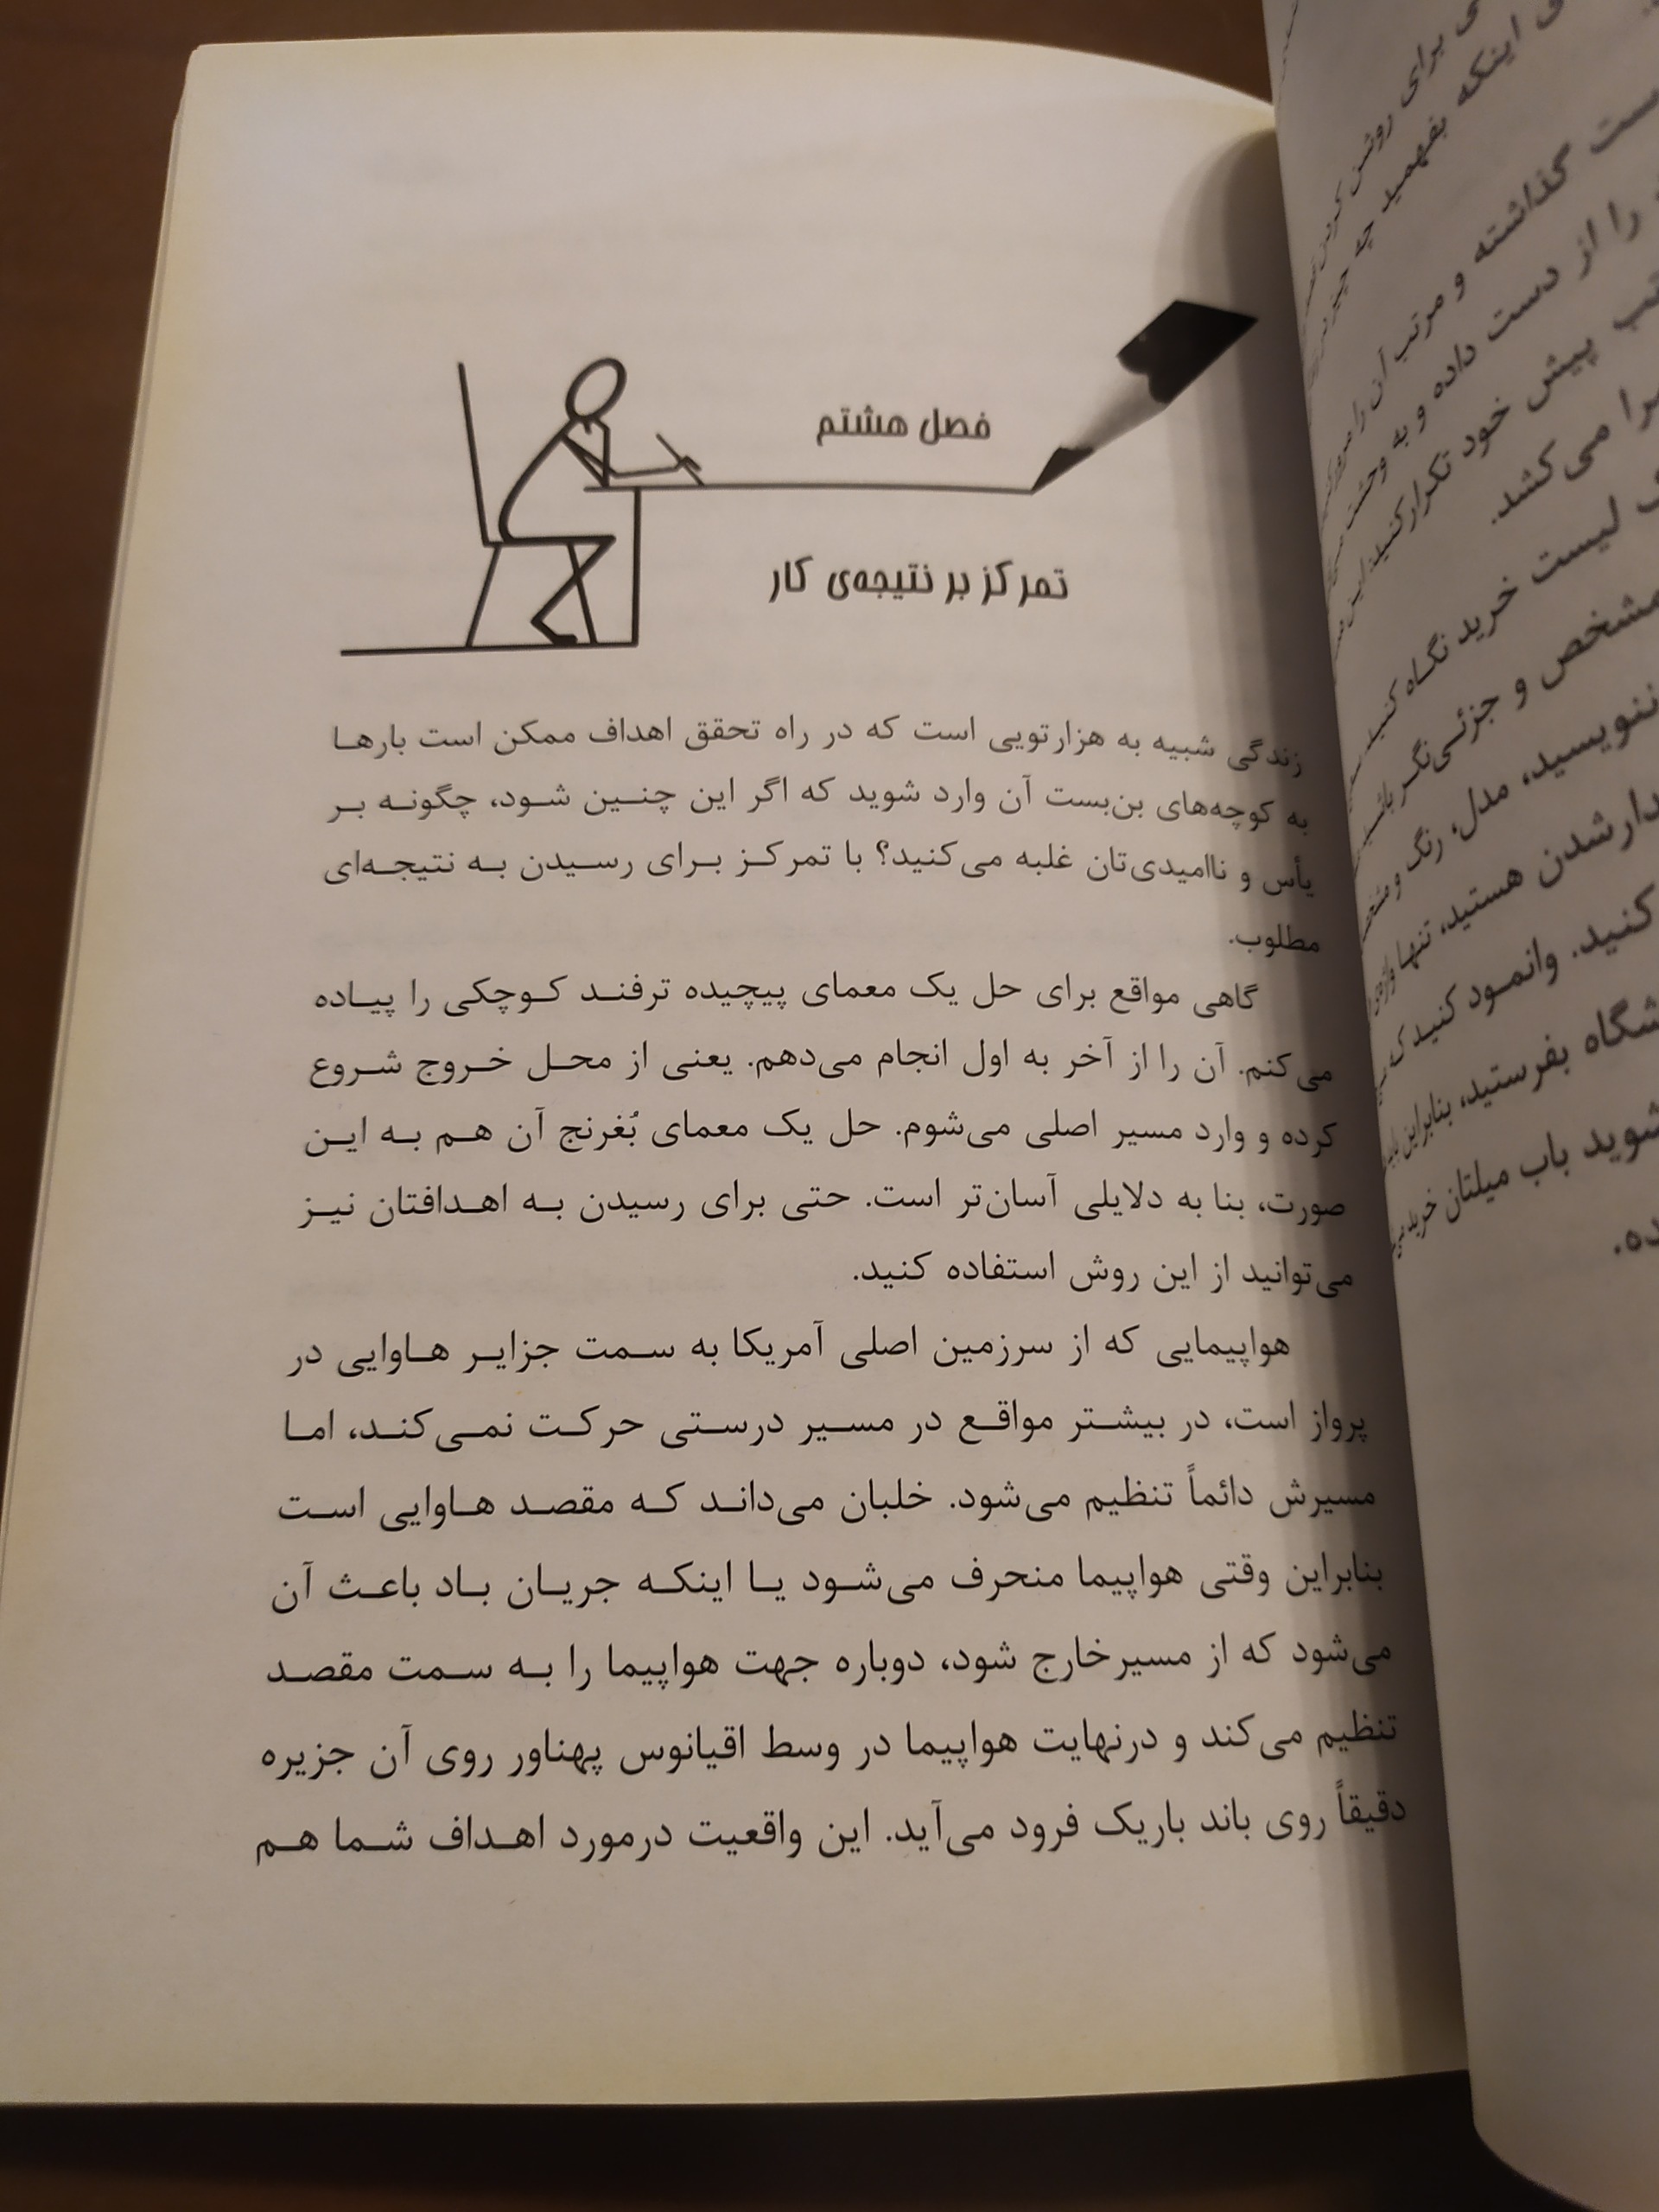 فصل هشتم
تمرکز بر نتیجه‌ی کار
زندگی شبیه به هزارتویی است که در راه تحقق اهداف ممکن است بارها
به کوچه‌های بن‌بست آن وارد شوید که اگر این چنین شود، چگونه بر
یأس و ناامیدی‌تان غلبه می‌کنید؟ با تمرکز برای رسیدن به نتیجه‌ای
مطلوب.
گاهی مواقع برای حل یک معمای پیچیده ترفند کوچکی را پیاده
می‌کنم. آن را از آخر به اول انجام می‌دهم. یعنی از محل خروج شروع
کرده و وارد مسیر اصلی می‌شوم. حل یک معمای بُغرنج آن هم به این
صورت، بنا به دلایلی آسان‌تر است. حتی برای رسیدن به اهدافتان نیز
می‌توانید از این روش استفاده کنید.
هواپیمایی که از سرزمین اصلی آمریکا به سمت جزایر هاوایی در
پرواز است، در بیشتر مواقع در مسیر درستی حرکت نمی‌کند، اما
مسیرش دائماً تنظیم می‌شود. خلبان می‌داند که مقصد هاوایی است
بنابراین وقتی هواپیما منحرف می‌شود یا اینکه جریان باد باعث آن
می‌شود که از مسیرخارج شود، دوباره جهت هواپیما را به سمت مقصد
تنظیم می‌کند و درنهایت هواپیما در وسط اقیانوس پهناور روی آن جزیره
دقیقاً روی باند باریک فرود می‌آید. این واقعیت درمورد اهداف شما هم
برای روشن
اینکه بفهمید چه
گذاشته و مرتب آن را
را از دست داده و به وحشت
پیش خود تکرارکنید
می‌کشد.
لیست خرید نگاه کنید
مشخص و جزئی‌نگر
ننویسید، مدل، رنگ و
دارشدن هستید، تنها
کنید. وانمود کنید
بفرستید، بنابراین
شوید باب میلتان